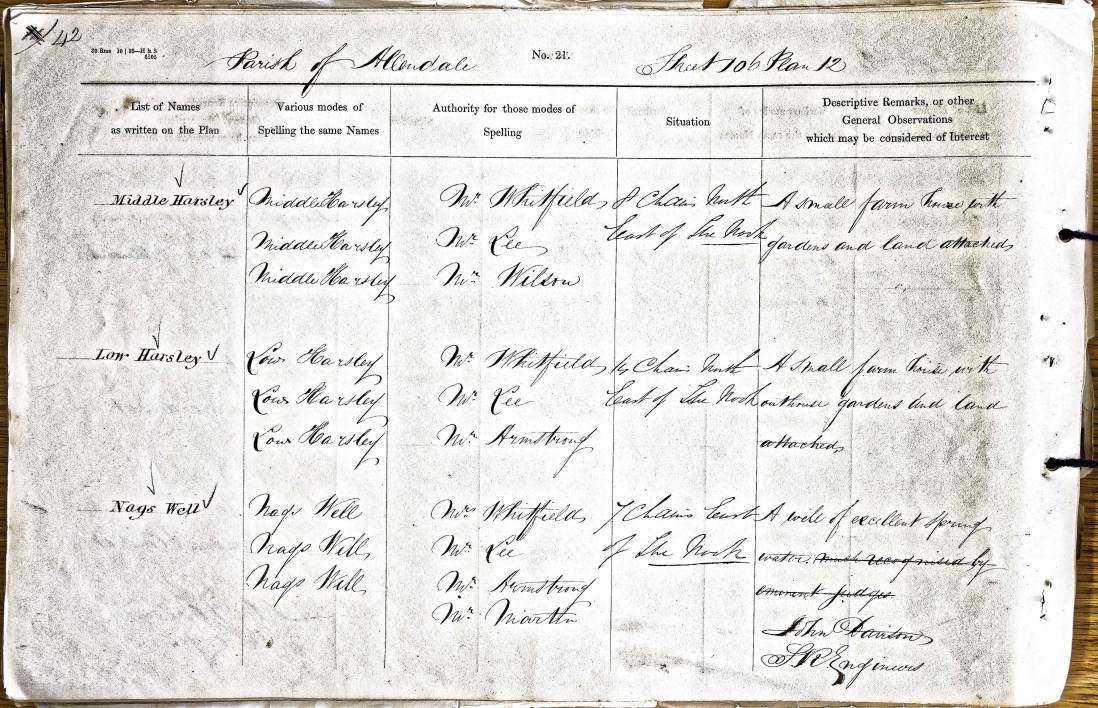 42
No. 21.
Parish of Allendale
Sheet 106 Plan 12
List of Names
as written on the Plan
Various modes of
Spelling the same Names
Authority for those modes of
Spelling
Situation
Descriptive Remarks, or other
General Observations
which may be considered of Interest
Middle Harsley
Middle Harsley
Middle Harsley
Middle Harsley
Mr. Whitfield
Mr. Lee
Mr. Wilson
8 Chains North
East of The Nook
A small farm house with
gardens and land attached
Low Harsley
Low Harsley
Low Harsley
Low Harsley
Mr. Whitfield
Mr. Lee
Mr. Armstrong
14 Chains North
East of The Nook
A small farm house with
outhouse gardens and land
attached
Nags Well
Nags Well
Nags Well
Nags Well
Mrs Whitfield
Mr. Lee
Mr. Armstrong
Mr. Martin
7 Chains East
of The Nook
A well of excellent spring
water much recognised by
eminent judges
John Davison
S R Engineers